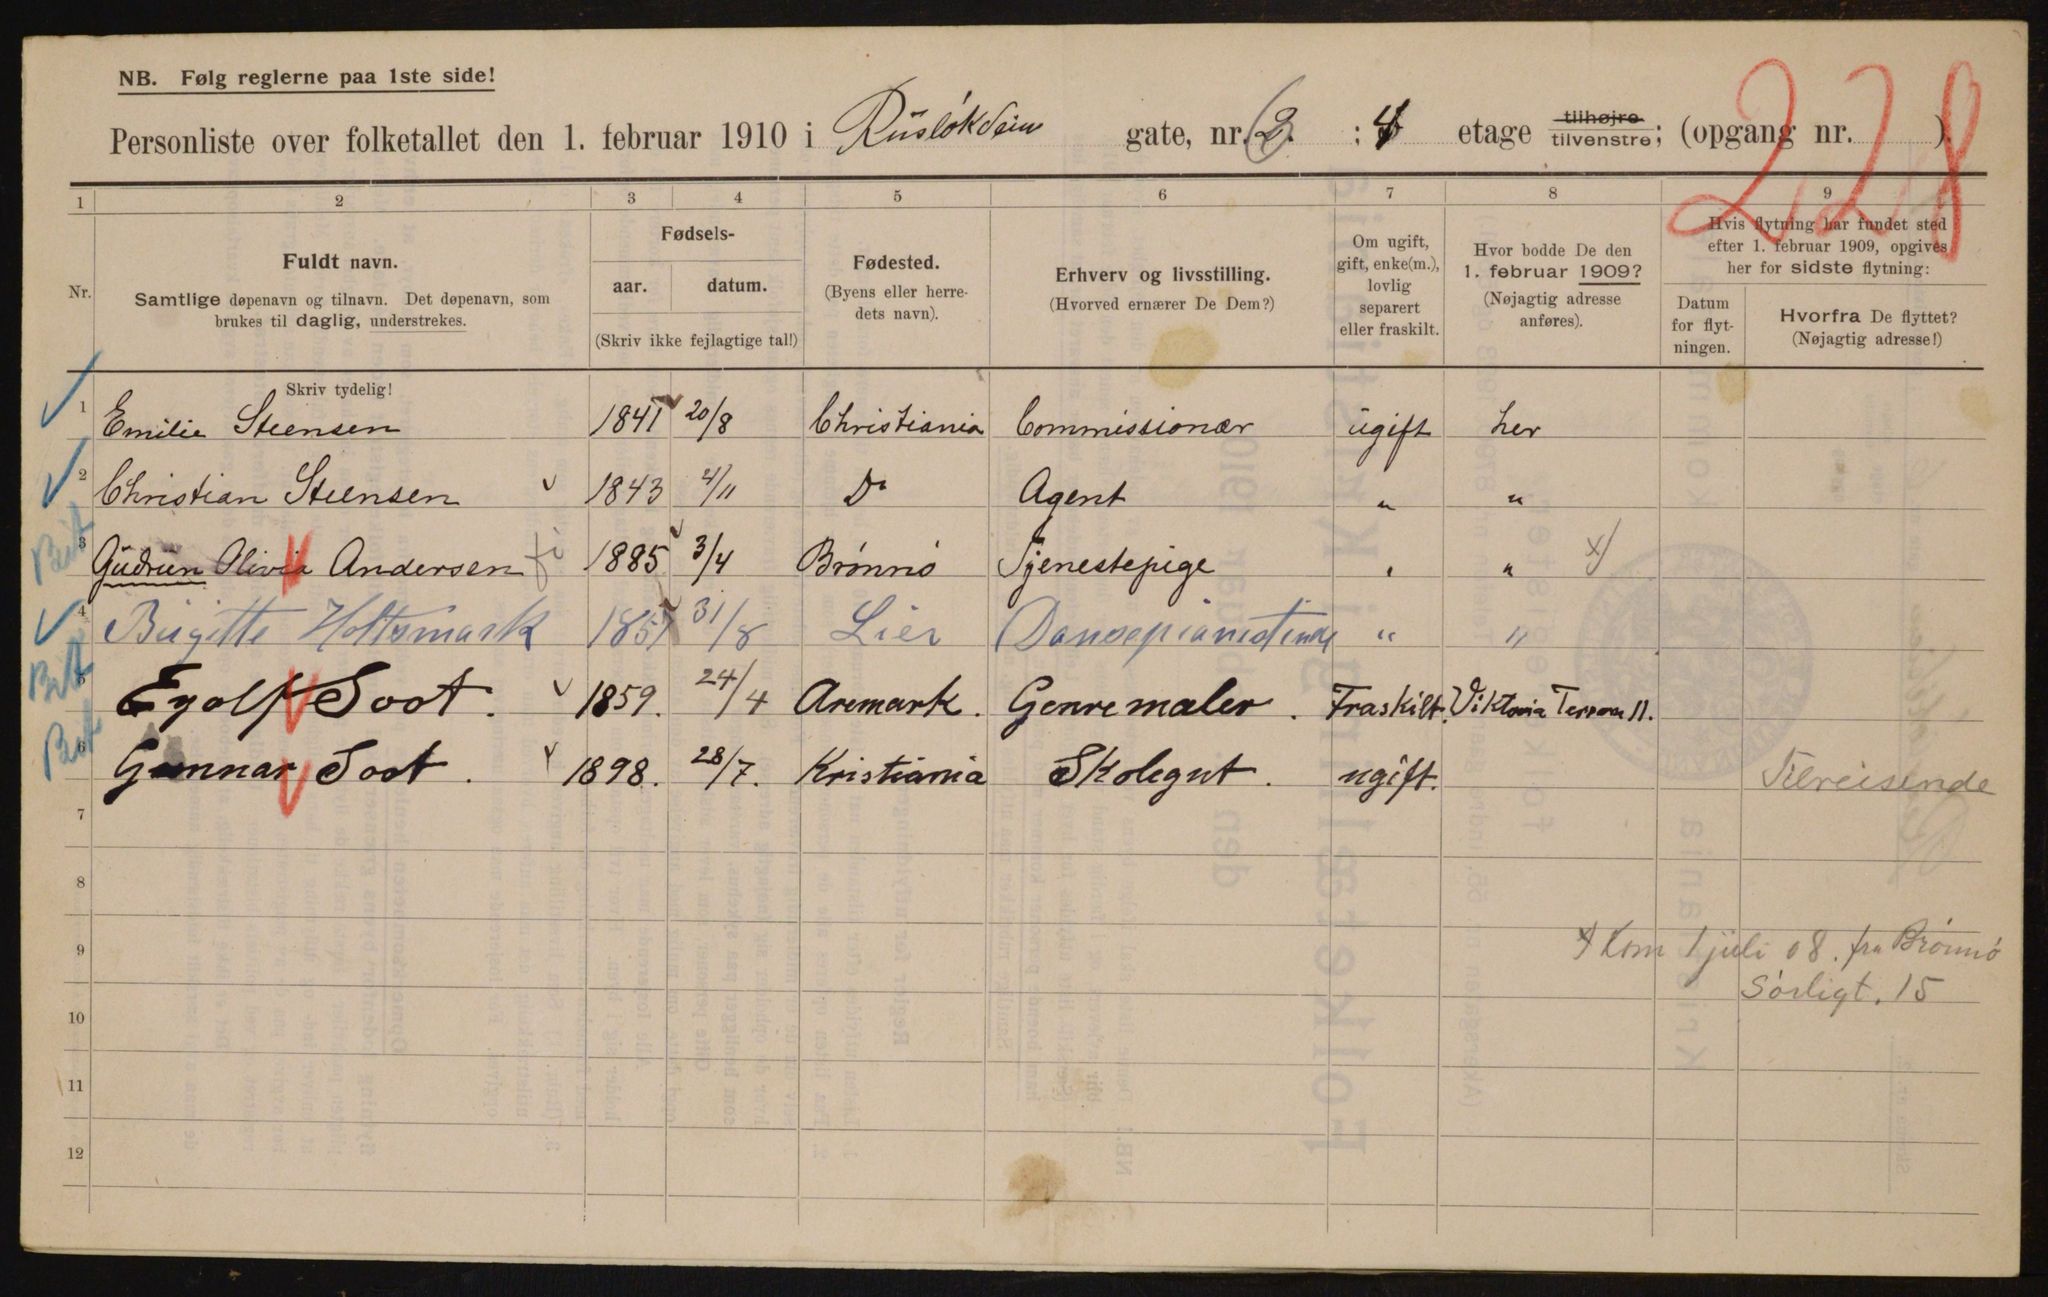 NB. Følg reglerne paa 1ste side!
228
Personliste over folketallet den 1. februar 1910 i Rusløkveien gate, nr. 2. : 4 etage tilhøjre tilvenstre; (opgang nr. ).
1 2 3 4 5 6 7 8 9
Nr.
Fuldt navn.
Samtlige døpenavn og tilnavn. Det døpenavn, som
brukes til daglig, understrekes.
Skriv tydelig!
Fødsels-
aar. datum.
(Skriv ikke fejlagtige tal!)
Fødested.
(Byens eller herre-
dets navn).
Erhverv og livsstilling.
(Hvorved ernærer De Dem?)
Om ugift,
gift, enke(m.),
lovlig
separert
eller fraskilt.
Hvor bodde De den
1. februar 1909?
(Nøjagtig adresse
anføres).
Hvis flytning har fundet sted
efter 1. februar 1909, opgives
her for sidste flytning:
Datum
for flyt-
ningen.
Hvorfra De flyttet?
(Nøjagtig adresse!)
1 Emilie Steensen 1841 20/8 Christiania Commissionær ugift her
2 Christian Steensen 1843 4/11 Do Agent " "
3 Gudrun Olivia Andersen 1885 3/4 Brønnø Tjenestepige " " x)
4 Birgitte Holtsmark 1857 31/8 Lier Dansepianistinde " "
5 Eyolf Soot. 1859. 24/4 Aremark. Genremaler. Fraskilt. Viktoria Terrasse 11.
6 Gunnar Soot. 1898. 28/7. Kristiania Skolegut. ugift. Tilreisende
7
8
9 x) Kom 1 juli 08. fra Brønnø
Sørligt. 15
10
11
12